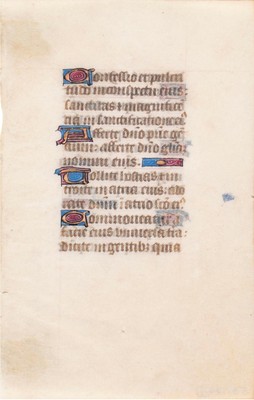 Confessio et pulcri
tudo in conspectu eius:
sanctitas et magnificen
tia in sanctificatione ei
Afferte dno patrie gen
tium: afferte dno gloriā
nomini eius.
Tollite hostias et in
troite in atria eius: ado
rate dnm in atrio sco ei
Commoveatur a
facie eius universa ter
dicite in gentibz quia